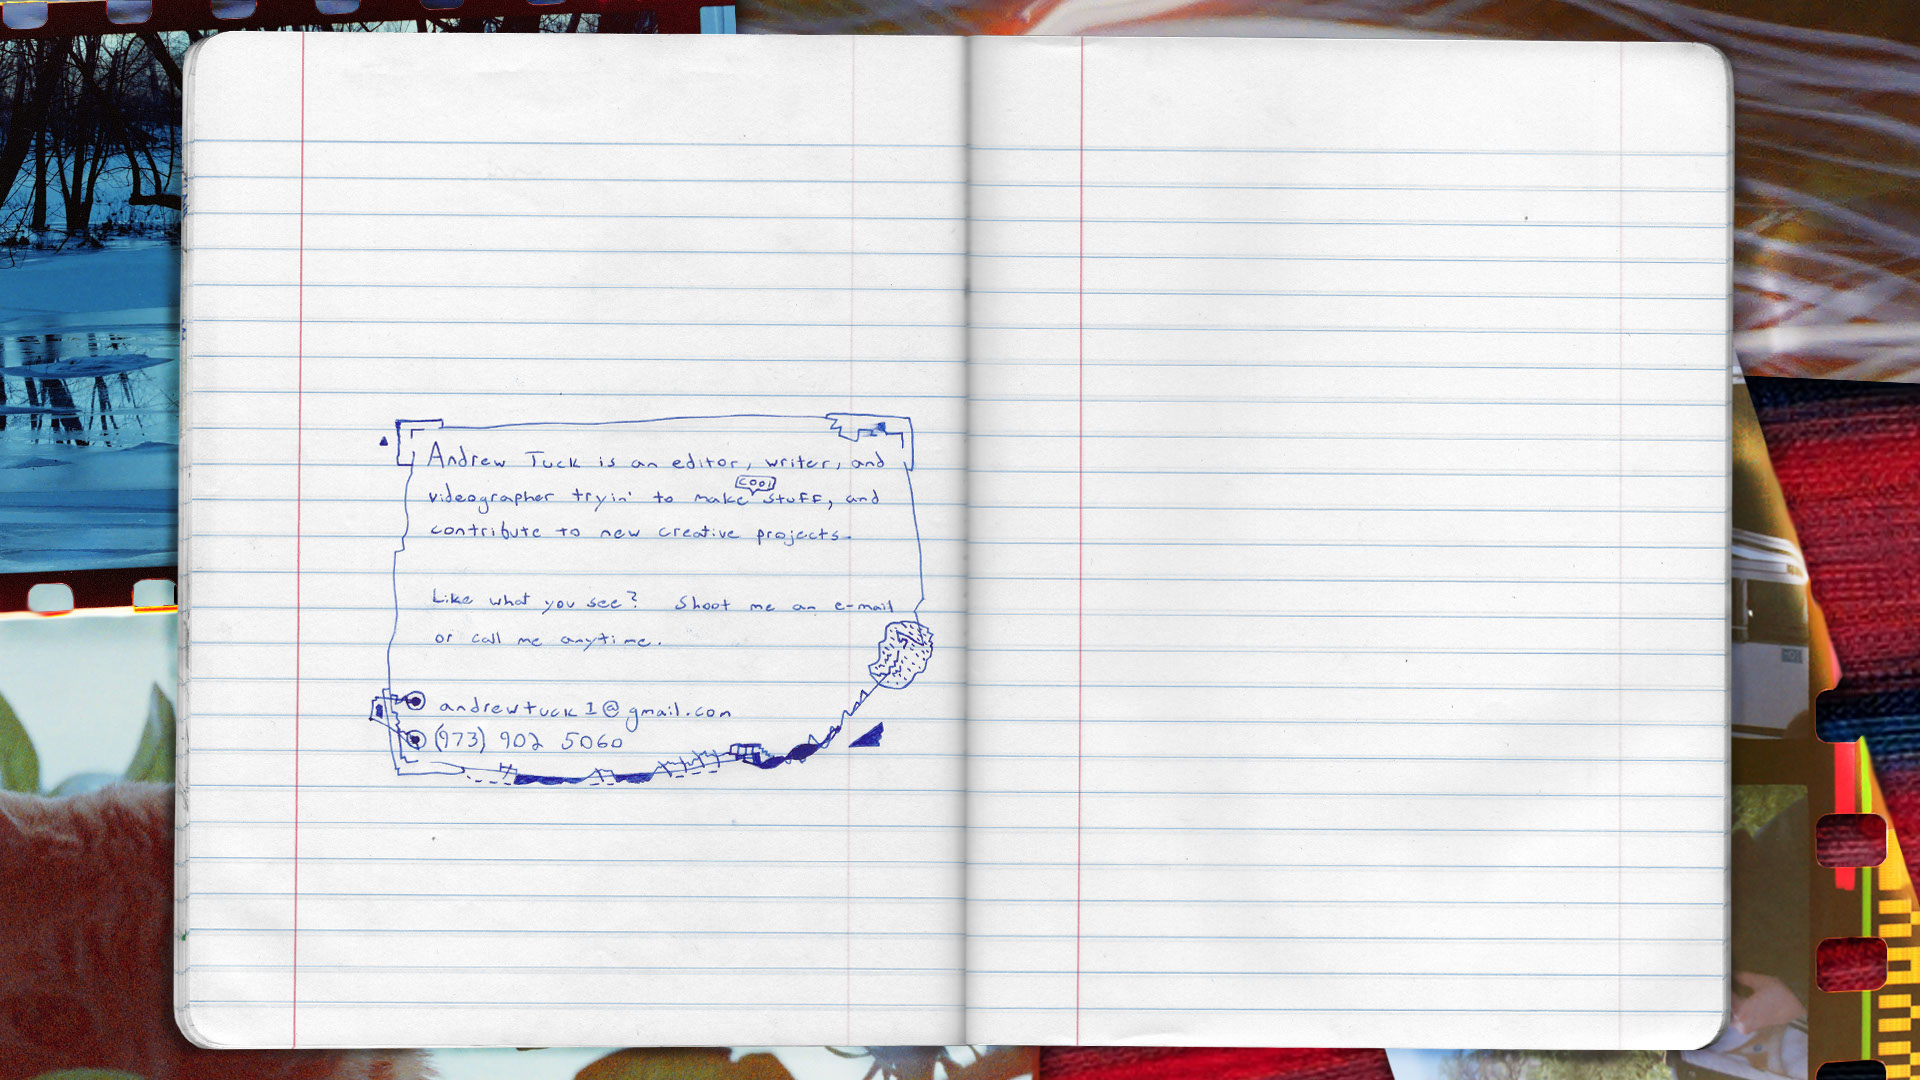 Andrew Tuck is an editor, writer, and
cool
videographer tryin' to make stuff, and
contribute to new creative projects.
Like what you see? Shoot me an e-mail
or call me anytime.
andrewtuck1@gmail.com
(973) 902 5060